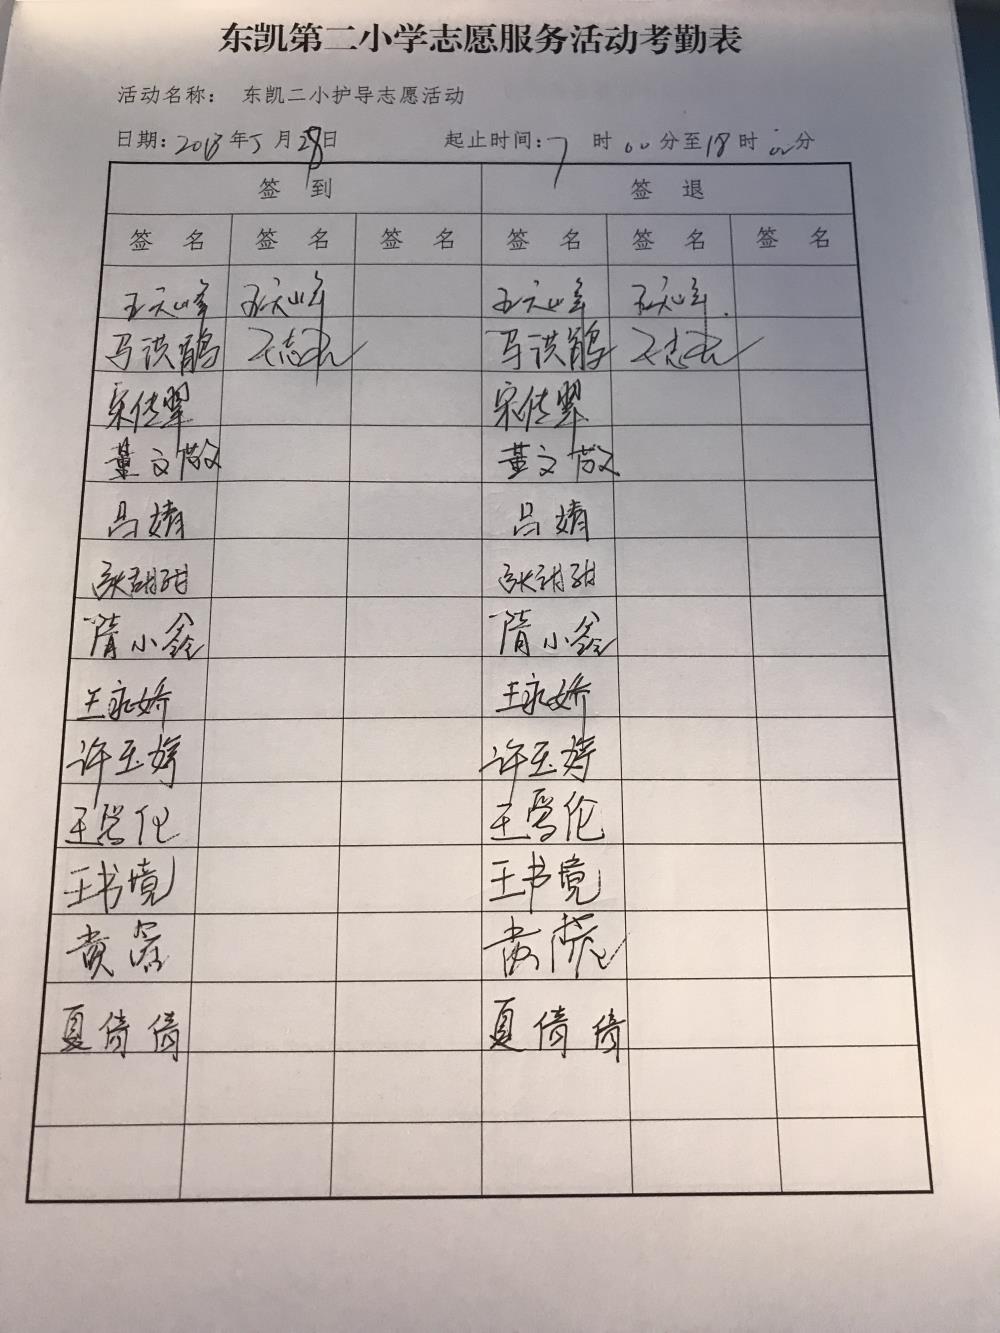 东凯第二小学志愿服务活动考勤表
活动名称： 东凯二小护导志愿活动
日期：2018年5月28日 起止时间：7时00分至18时00分
签 到 签 退
签 名 签 名 签 名 签 名 签 名 签 名
马洪鹃 马洪鹃
宋佳翠 宋佳翠
董文敬 董文敬
吕婧 吕婧
甜甜 甜甜
隋小鑫 隋小鑫
王永娇 王永娇
许玉婷 许玉婷
王 伦 王 伦
王书境 王书境
黄 黄
夏倩倩 夏倩倩